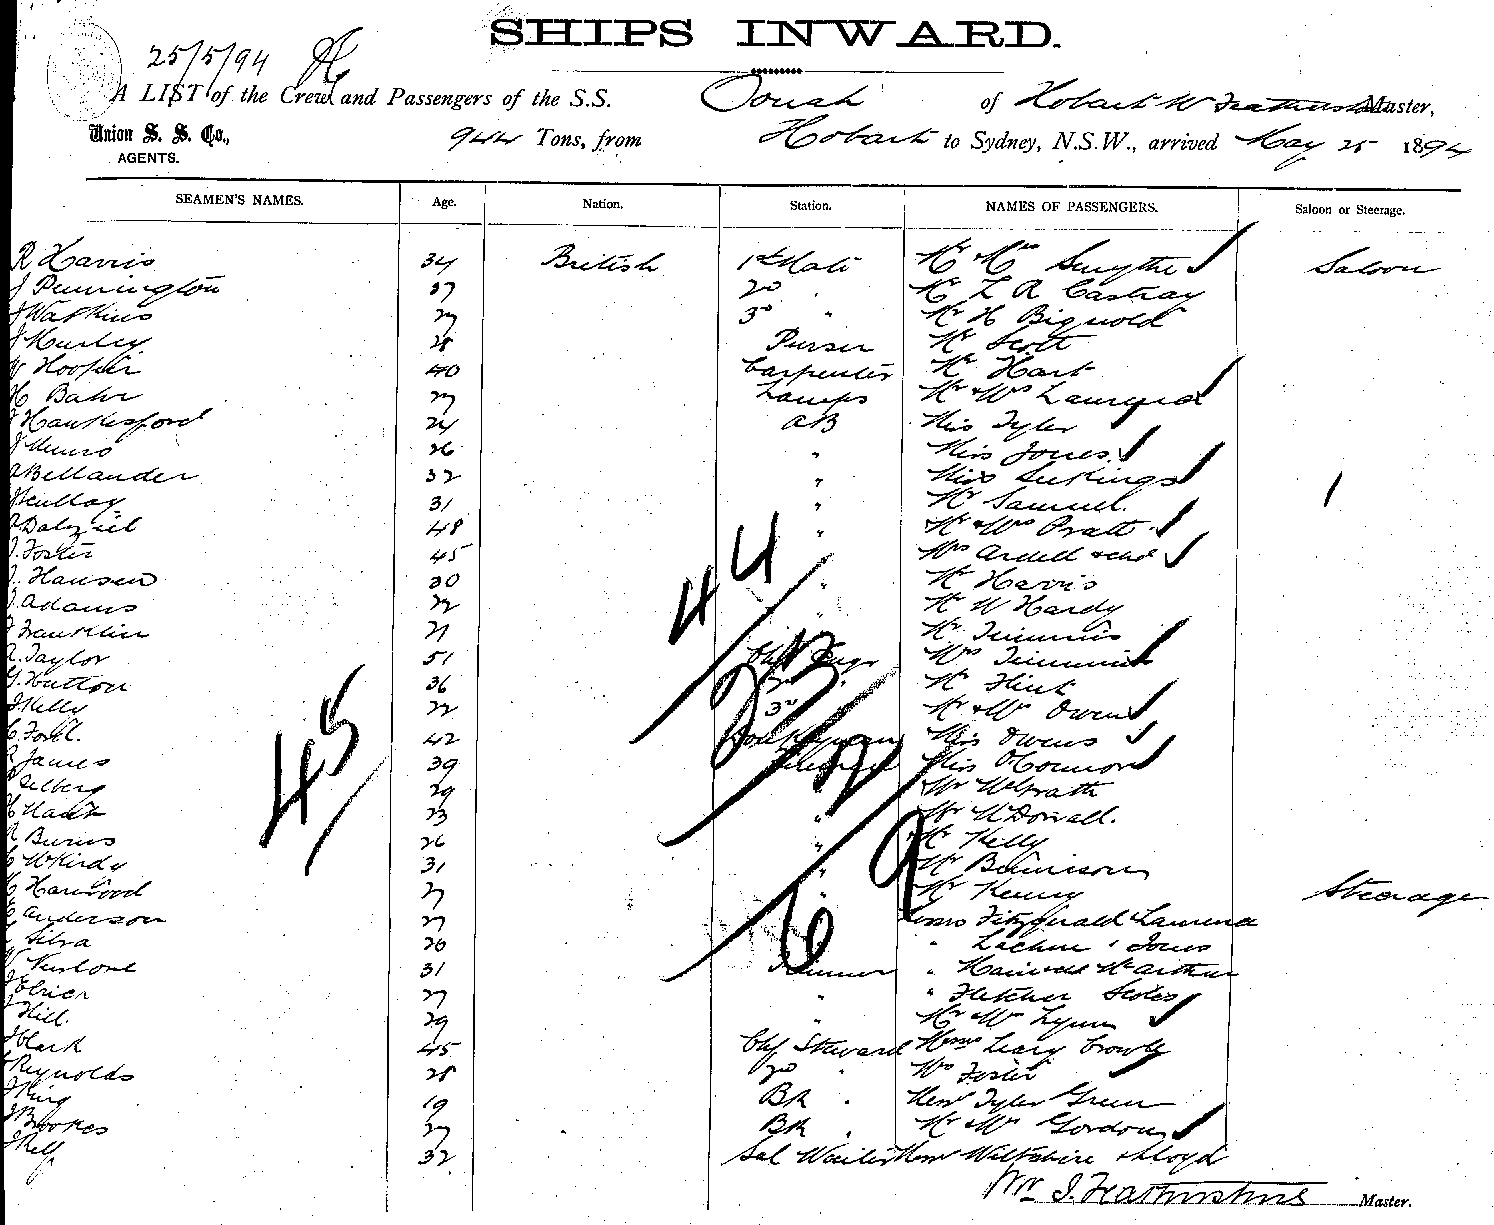 SHIPS INWARD.
25/5/94
A LIST of the Crew and Passengers of the S.S. Oonah of Hobart W Featherstone Master,
Union S. S. Co., 944 Tons, from Hobart to Sydney, N.S.W., arrived May 25 1894
AGENTS.
SEAMEN'S NAMES. Age. Nation. Station. NAMES OF PASSENGERS. Saloon or Steerage.
R Harris 34 British 1st Mate Mr Mrs Smythe Saloon
J Pennington 37 2D " Mr L R Castray
J Watkins 27 3D " Mr H Bignold
J Hurley 28 Purser Mr Scott
W Hooper 40 Carpenter Mr Hart
H Bahr 27 Lamps Mr & Mrs
J Hankesford 24 AB Miss Tyler
J Munro 26 " Miss Jones
A Bellander 32 " Miss Seekings
31 " Mr Samuel.
Dalziel 48 " Mr & Mrs Pratt
J. Foster 45 " Mrs Ardell & chd
J. Hansen 30 " Mr Harris
J. Adams 22 " Mr W Hardy
J Franklin 21 Mr Timmins
A. Taylor 51 Chf Engr Mrs Timmins
G. Hutton 36 2D " Mr Flint
J Kelly 22 3D Mr & Mrs Owens
C. Ford. 42 Donkeyman Miss Owens
R James 39 Fireman Miss O'Connor
29 " Mr McGrath
23 " Mr McDowall.
R Burns 26 " Mr Kelly
McKirdy 31 " Mr Bennison
Harwood 27 " Mr Kenny Steerage
Anderson 27 " Messrs Fitzgerald Laurence
Silva 20 " " Jones
31 Trimmer " McArthur
27 " " Fletcher
Hill. 29 " Mr Mrs Lynn
J Clark 45 Chf Steward Messrs Leary Crowly
Reynolds 28 2D " Mrs Foster
J King 19 BR " Messrs Tyler Green
J Brookes 27 BR " Mr Mrs Gordon
J Relf 32 Sal Waiter Messrs Wiltshire & Lloyd
45
44
6
9
Wm. J. Featherstone Master.